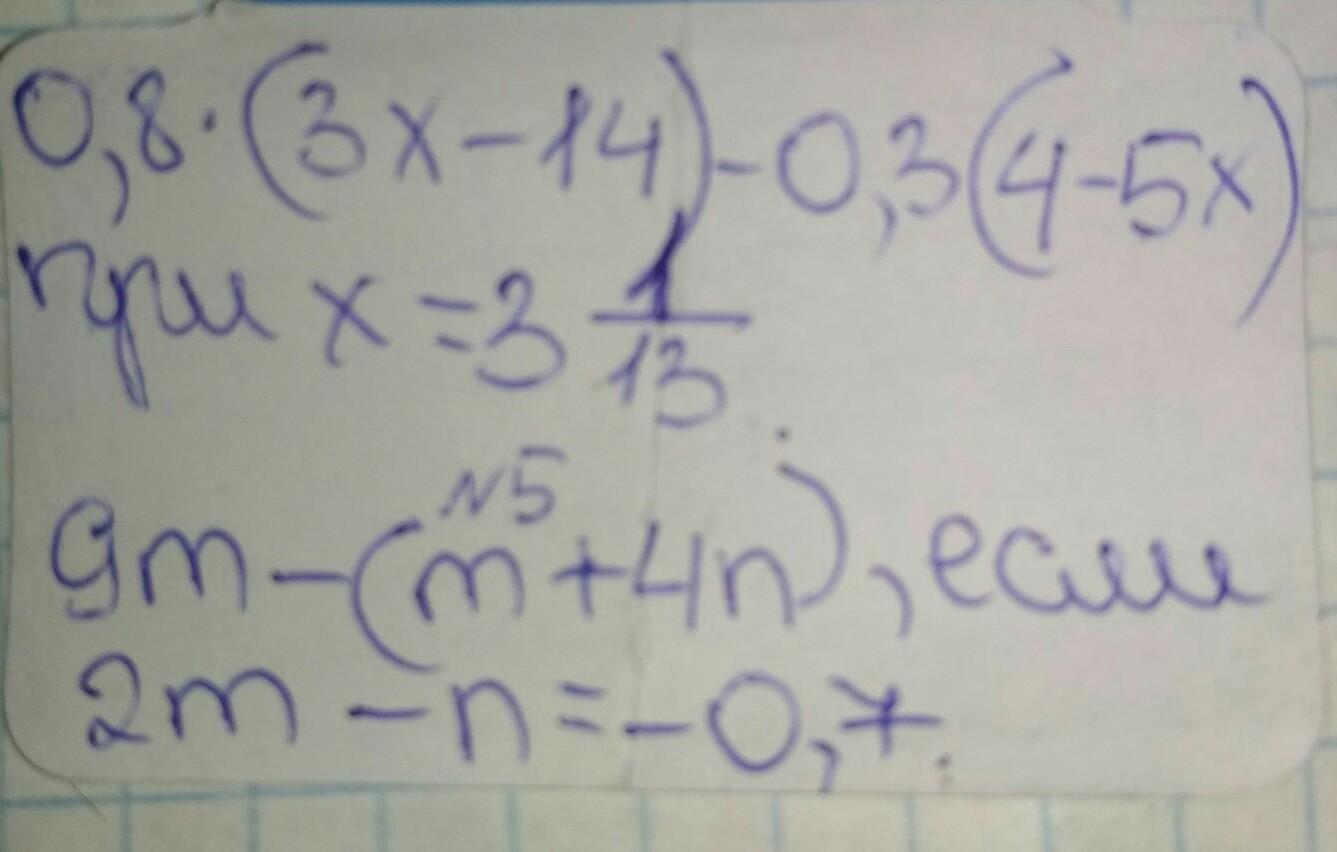 0,8·(3x-14)-0,3(4-5x)
при x=3 1/13
N5
9m-(m+4n), если
2m-n=-0,7.